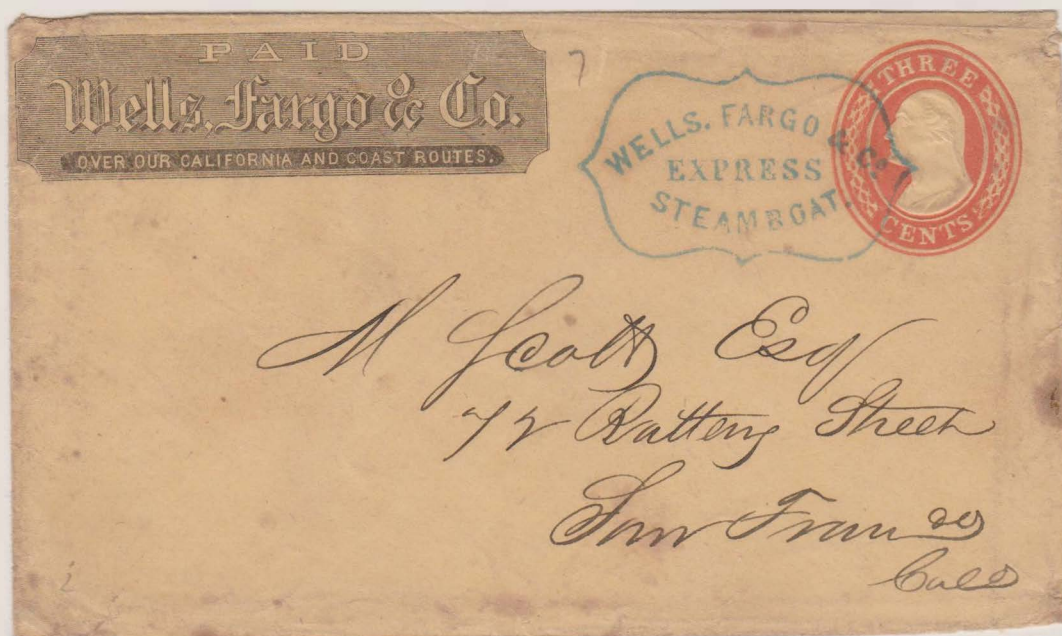 PAID
Wells, Fargo & Co.
OVER OUR CALIFORNIA AND COAST ROUTES.
7
WELLS, FARGO & CO
EXPRESS
STEAMBOAT.
THREE
CENTS
M Scott Esq
72 Battery Street
San Franco
Cala